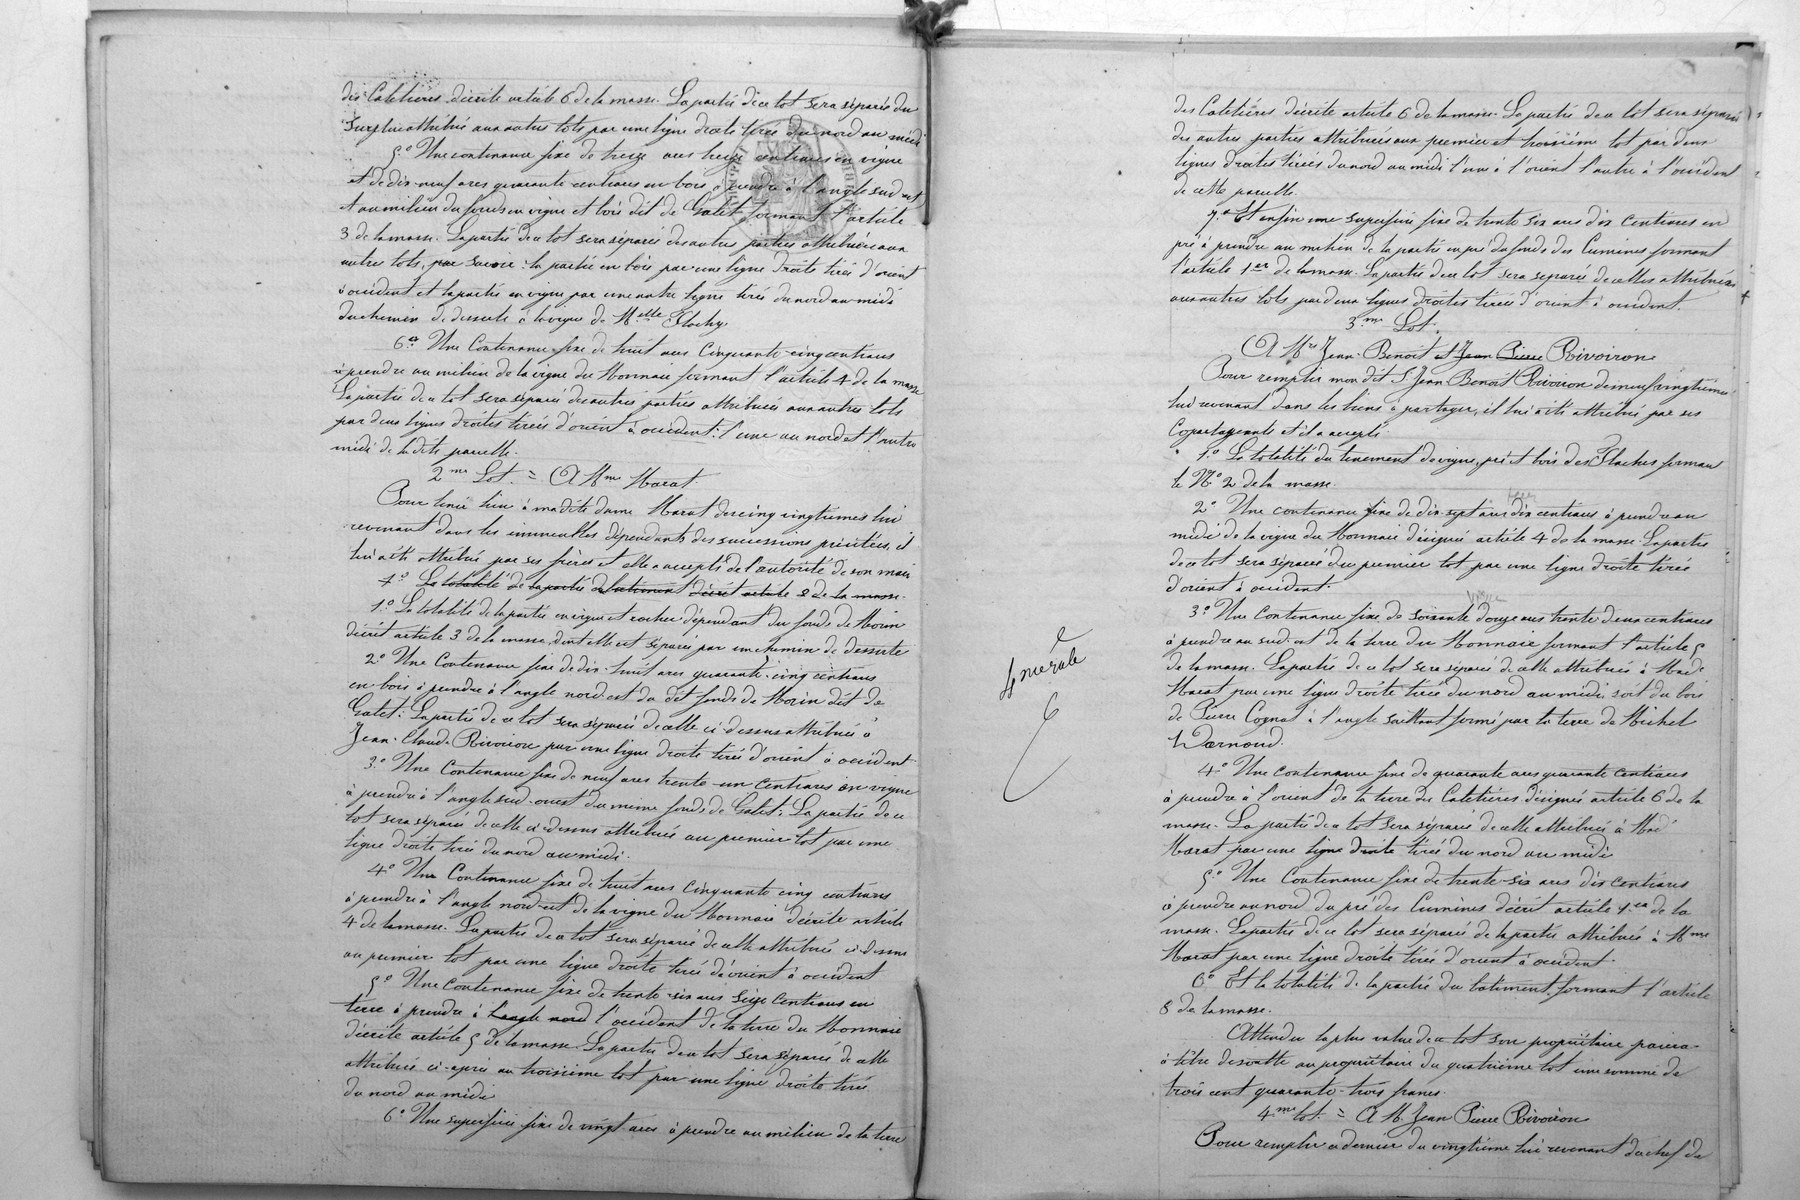 des Caletières décrite article 6 de la masse. La partie de ce lot sera séparée du
surplus attribué aux autres lots par une ligne droite tirée du nord au midi
5.° Une contenance fixe de treize ares treize centiares en vigne
et de dix-neuf ares quarante centiares en bois à prendre à l'angle sud est
et au milieu du fonds en vigne et bois dit de Galet formant l'article
3 de la masse. La partie de ce lot sera séparée des autres parties attribuées aux
autres lots, par savoir: la partie en bois par une ligne droite tirée d'orient
à occident et la partie en vigne par une autre ligne tirée du nord au midi
du chemin de desserte à la vigne de Melle Flachy
6° Une Contenance fixe de huit ares Cinquante-cinq centiares
à prendre au milieu de la vigne du Monnaie formant l'article 4 de la masse
La partie de ce lot sera séparée des autres parties attribuées aux autres lots
par deux lignes droites tirées d'orient à occident: l'une au nord et l'autre
midi de la dite parcelle.
2me Lot. = A Mme Marat
Pour tenir lieu à ma dite dame Marat des cinq vingtièmes lui
revenant dans les immeubles dépendants des successions précitées, il
lui a été attribué par ses frères et elle a accepté de l'autorité de son mari
1° La totalité de la partie de bâtiment décrit article 8 de la masse.
1.° La totalité de la partie en vigne et rocher dépendant du fonds de Morin
décrit article 3 de la masse, dont elle est séparée par un chemin de desserte
2° Une Contenance fixe de dix-huit ares quarante-cinq centiares
en bois à prendre à l'angle nord-est du dit fonds de Morin dit de
Galet: La partie de ce lot sera séparée de celle ci-dessus attribuée à
Jean-Claude Rivoiron par une ligne droite tirée d'orient à occident
3.° Une Contenance fixe de neuf ares trente-un centiares en vigne
à prendre à l'angle sud-ouest du même fonds de Galet: La partie de ce
lot sera séparée de celle ci-dessus attribuée au premier lot par une
ligne droite tirée du nord au midi.
4.° Une Contenance fixe de huit ares cinquante cinq centiares
à prendre à l'angle nord-est de la vigne du Monnaie décrite article
4 de la masse. La partie de ce lot sera séparée de celle attribuée ci-dessus
au premier lot par une ligne droite tirée d'orient à occident
5° Une Contenance fixe de trente-six ares seize centiares en
terre à prendre à l'angle nord l'occident de la terre du Monnaie
décrite article 5 de la masse. La partie de ce lot sera séparée de celle
attribuée ci-après au troisième lot par une ligne droite tirée
du nord au midi
6° Une superficie fixe de vingt ares à prendre au milieu de la terre
des Caletières décrite article 6 de la masse. La partie de ce lot sera séparée
des autres parties attribuées aux premier et troisième lot par deux
lignes droites tirées du nord au midi l'une à l'orient l'autre à l'occident
de cette parcelle.
7° Et enfin une superficie fixe de trente six ares dix centiares en
pré à prendre au milieu de la partie en pré du fonds des Cumines formant
l'article 1er de la masse. La partie de ce lot sera séparée de celles attribuées
aux autres lots par deux lignes droites tirées d'orient à occident.
3me Lot.
A Mr Jean-Benoit et Jean Pierre Rivoiron
Pour remplir mon dit S. Jean Benoit Rivoiron de neuf vingtièmes
lui revenant dans les biens à partager, il lui a été attribué par ses
Copartageants et il a accepté
1.° La totalité du tènement de vigne, pré et bois des Flaches formant
le N° 2 de la masse.
2° Une contenance fixe de dix-sept ares dix centiares à prendre au
midi de la vigne du Monnaie désignée article 4 de la masse. La partie
de ce lot sera séparée du premier lot par une ligne droite tirée
d'orient à occident.
3.° Une Contenance fixe de soixante douze ares trente deux centiares
à prendre au sud-est de la terre du Monnaie formant l'article 5
de la masse. La partie de ce lot sera séparée de celle attribuée à Made
Marat par une ligne droite tirée du nord au midi soit du bois
de Pierre Cognat à l'angle saillant formé par la terre de Michel
4 mërale
4° Une contenance fixe de quarante ares quarante centiares
à prendre à l'orient de la terre des Caletières désignée article 6 de la
masse. La partie de ce lot sera séparée de celle attribuée à Made
Marat par une ligne droite tirée du nord au midi
5.° Une Contenance fixe de trente-six ares dix centiares
à prendre au nord du pré des Cumines décrit article 1er de la
masse. La partie de ce lot sera séparée de la partie attribuée à Mme
Marat par une ligne droite tirée d'orient à occident.
6° Et la totalité de la partie du bâtiment formant l'article
8 de la masse.
Attendu la plus value de ce lot son propriétaire paiera
à titre de soulte au propriétaire du quatrième lot une somme de
trois cent quarante-trois francs
4me lot. = A M. Jean Pierre Rivoiron
Pour remplir ce dernier du vingtième lui revenant du chef de